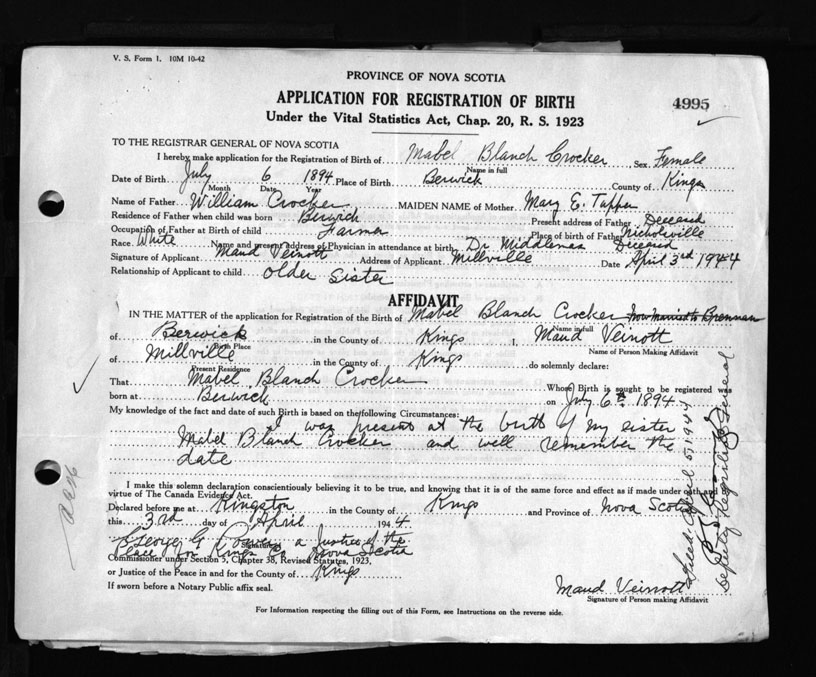 V. S. Form 1. 10M 10-42
PROVINCE OF NOVA SCOTIA
APPLICATION FOR REGISTRATION OF BIRTH
4995
Under the Vital Statistics Act, Chap. 20, R. S. 1923
TO THE REGISTRAR GENERAL OF NOVA SCOTIA
I hereby make application for the Registration of Birth of Mabel Blanch Crocker, Sex Female
Name in full
Date of Birth July 6 1894 Place of Birth Berwick County of Kings
Month Date Year
Name of Father William Crocker MAIDEN NAME of Mother Mary E. Tupper
Residence of Father when child was born Berwick Present address of Father Deceased
Occupation of Father at Birth of child Farmer Place of birth of Father Nicholsville
Race White Name and present address of Physician in attendance at birth Dr. Middlemas Deceased
Signature of Applicant Maud Veinott Address of Applicant Millville Date April 3rd 1944
Relationship of Applicant to child Older Sister
AFFIDAVIT
IN THE MATTER of the application for Registration of the Birth of Mabel Blanch Crocker now married to Brennan
Name in full
of Berwick in the County of Kings I, Maud Veinott
Birth Place Name of Person Making Affidavit
of Millville in the County of Kings do solemnly declare:
Present Residence
That Mabel Blanch Crocker Whose Birth is sought to be registered was
born at Berwick on July 6th 1894
My knowledge of the fact and date of such Birth is based on the following Circumstances:
I was present at the birth of my sister
Mabel Blanch Crocker and well remember the
date
I make this solemn declaration conscientiously believing it to be true, and knowing that it is of the same force and effect as if made under oath and by
virtue of The Canada Evidence Act.
Declared before me at Kingston in the County of Kings and Province of Nova Scotia
this 3rd day of April 1944
George G. a Justice of the
Signature
Peace for Kings Co Nova Scotia
Commissioner under Section 5, Chapter 38, Revised Statutes, 1923,
or Justice of the Peace in and for the County of Kings
If sworn before a Notary Public affix seal.
Maud Veinott
Signature of Person making Affidavit
For Information respecting the filling out of this Form, see Instructions on the reverse side.
Filed April 5, 1944
Deputy Registrar General